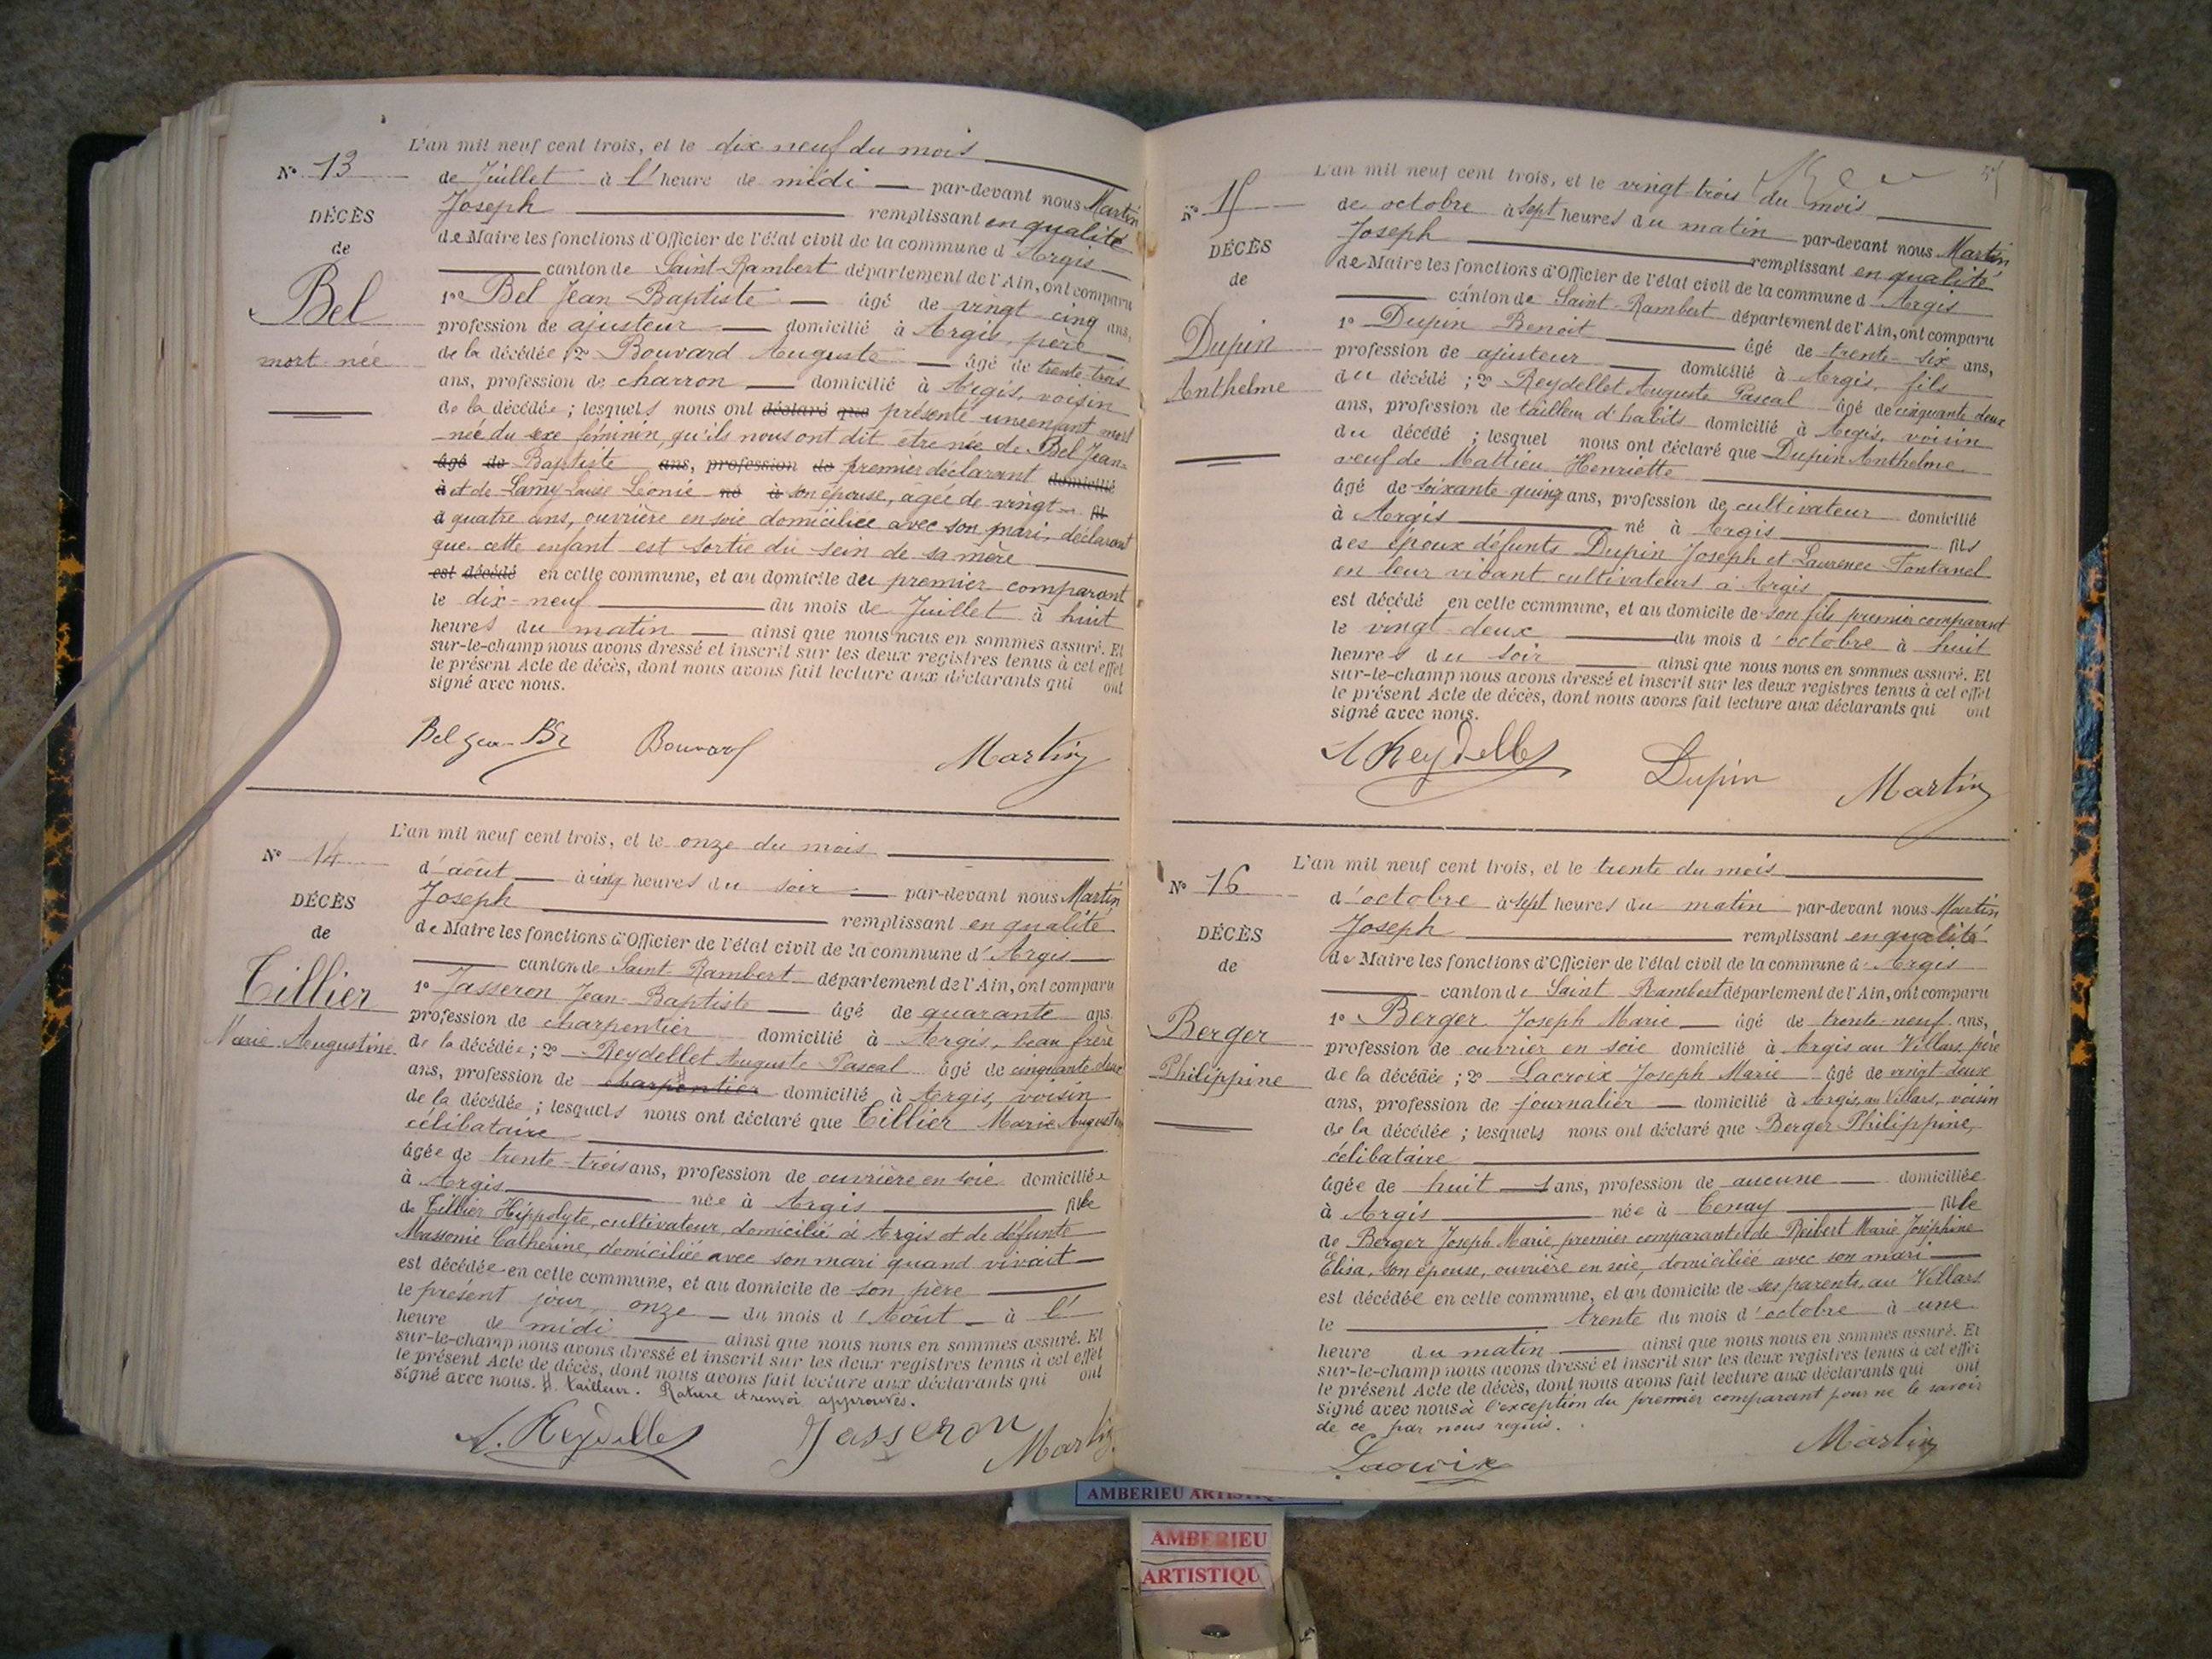 L'an mil neuf cent trois, et le dix neuf du mois
N° 13
de Juillet à l'heure de midi par-devant nous Martin
Joseph remplissant en qualité
DÉCÈS
de Maire les fonctions d'Officier de l'état civil de la commune d'Argis
de
canton de Saint-Rambert département de l'Ain, ont comparu
Bel
1° Bel Jean Baptiste âgé de vingt-cinq ans,
profession de ajusteur domicilié à Argis, père
mort-née
de la décédée ; 2° Bouvard Auguste âgé de trente-trois
ans, profession de charron domicilié à Argis, voisin
de la décédée ; lesquels nous ont déclaré que présenté une enfant mort
-née du sexe féminin, qu'ils nous ont dit être née de Bel Jean-
âgé de Baptiste ans, profession de premier déclarant domicilié
à et de Lamy Louise Léonie né à son épouse, âgée de vingt- fil
d quatre ans, ouvrière en soie domiciliée avec son mari, déclarant
que cette enfant est sortie du sein de sa mère
est décédé en cette commune, et au domicile du premier comparant
le dix-neuf du mois de Juillet à huit
heures du matin ainsi que nous nous en sommes assuré. Et
sur-le-champ nous avons dressé et inscrit sur les deux registres tenus à cet effet
le présent Acte de décès, dont nous avons fait lecture aux déclarants qui ont
signé avec nous.
Bel Jean-Bte Bouvard Martin
L'an mil neuf cent trois, et le onze du mois
N° 14
d'août à cinq heures du soir par-devant nous Martin
Joseph remplissant en qualité
DÉCÈS
de Maire les fonctions d'Officier de l'état civil de la commune d'Argis
de
canton de Saint Rambert département de l'Ain, ont comparu
Tillier
1° Jasseron Jean-Baptiste âgé de quarante ans
profession de charpentier domicilié à Argis, beau frère
Marie Augustine
de la décédée ; 2° Reydellet Auguste Pascal âgé de cinquante deux
ans, profession de charpentier domicilié à Argis, voisin
de la décédée ; lesquels nous ont déclaré que Tillier Marie Augustine
célibataire
âgée de trente-trois ans, profession de ouvrière en soie domiciliée
à Argis née à Argis fille
de Tillier Hippolyte, cultivateur, domicilié à Argis et de défunte
Massonie Catherine, domiciliée avec son mari quand vivait
est décédée en cette commune, et au domicile de son père
le présent jour, onze du mois d'Août à l'
heure de midi ainsi que nous nous en sommes assuré. Et
sur-le-champ nous avons dressé et inscrit sur les deux registres tenus à cet effet
le présent Acte de décès, dont nous avons fait lecture aux déclarants qui ont
signé avec nous. tailleur. Rature et renvoi approuvés.
A. Reydellet Jasseron Martin
L'an mil neuf cent trois, et le vingt-trois du mois
N° 15
de octobre à sept heures du matin par-devant nous Martin
Joseph remplissant en qualité
DÉCÈS
de Maire les fonctions d'Officier de l'état civil de la commune d'Argis
de
canton de Saint-Rambert département de l'Ain, ont comparu
Dupin
1° Dupin Benoit âgé de trente-six ans,
profession de ajusteur domicilié à Argis, fils
Anthelme
du décédé ; 2° Reydellet Auguste Pascal âgé de cinquante deux
ans, profession de tailleur d'habits domicilié à Argis, voisin
du décédé ; lesquel nous ont déclaré que Dupin Anthelme
veuf de Mattieu Henriette
âgé de soixante quinze ans, profession de cultivateur domicilié
à Argis né à Argis fils
des époux défunts Dupin Joseph et Laurence Fontanel
en leur vivant cultivateurs à Argis
est décédé en cette commune, et au domicile de son fils premier comparant
le vingt deux du mois d'octobre à huit
heures du soir ainsi que nous nous en sommes assuré. Et
sur-le-champ nous avons dressé et inscrit sur les deux registres tenus à cet effet
le présent Acte de décès, dont nous avons fait lecture aux déclarants qui ont
signé avec nous.
A Reydellet Dupin Martin
L'an mil neuf cent trois, et le trente du mois
N° 16
d'octobre à sept heures du matin par-devant nous Martin
Joseph remplissant en qualité
DÉCÈS
de Maire les fonctions d'Officier de l'état civil de la commune d'Argis
de
canton de Saint Rambert département de l'Ain, ont comparu
Berger
1° Berger Joseph Marie âgé de trente-neuf ans,
profession de ouvrier en soie domicilié à Argis au Villars, père
Philippine
de la décédée ; 2° Lacroix Joseph Marie âgé de vingt-deux
ans, profession de journalier domicilié à Argis, au Villars, voisin
de la décédée ; lesquels nous ont déclaré que Berger Philippine,
célibataire
âgée de huit ans, profession de aucune domiciliée
à Argis née à Tenay fille
de Berger Joseph Marie, premier comparant et de Reibert Marie Joséphine
Elisa, son épouse, ouvrière en soie, domiciliée avec son mari
est décédée en cette commune, et au domicile de ses parents, au Villars
le trente du mois d'octobre à une
heure du matin ainsi que nous nous en sommes assuré. Et
sur-le-champ nous avons dressé et inscrit sur les deux registres tenus à cet effet
le présent Acte de décès, dont nous avons fait lecture aux déclarants qui ont
signé avec nous à l'exception du premier comparant pour ne le savoir
de ce par nous requis.
Lacroix Martin
AMBERIEU
AMBERIEU
ARTISTIQU